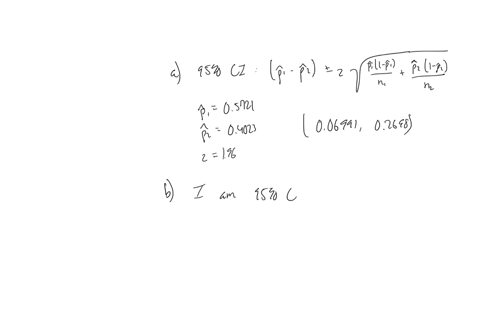 a) 95% CI : (p̂₁ - p̂₂) ± z √( p̂₁(1-p̂₁)/n₁ + p̂₂(1-p̂₂)/n₂ )
p̂₁ = 0.5721
p̂₂ = 0.4023 ( 0.06991, 0.2698)
z = 196
b) I am 95% C